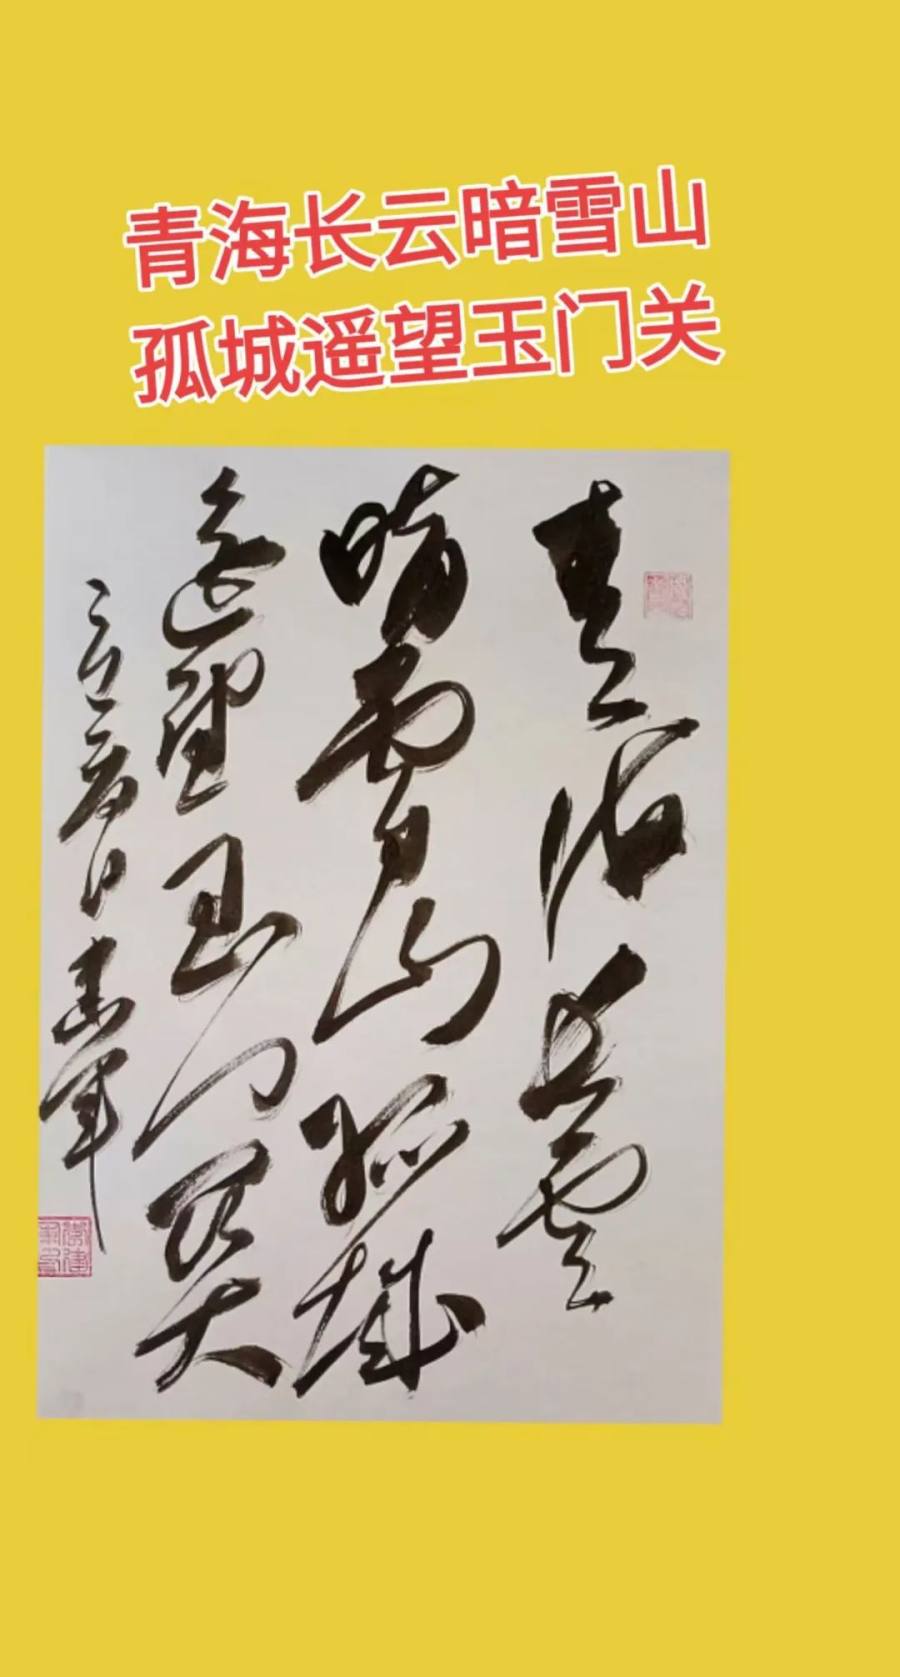 青海长云暗雪山
孤城遥望玉门关
青海长雲
暗雪山孤城
遥望玉门关